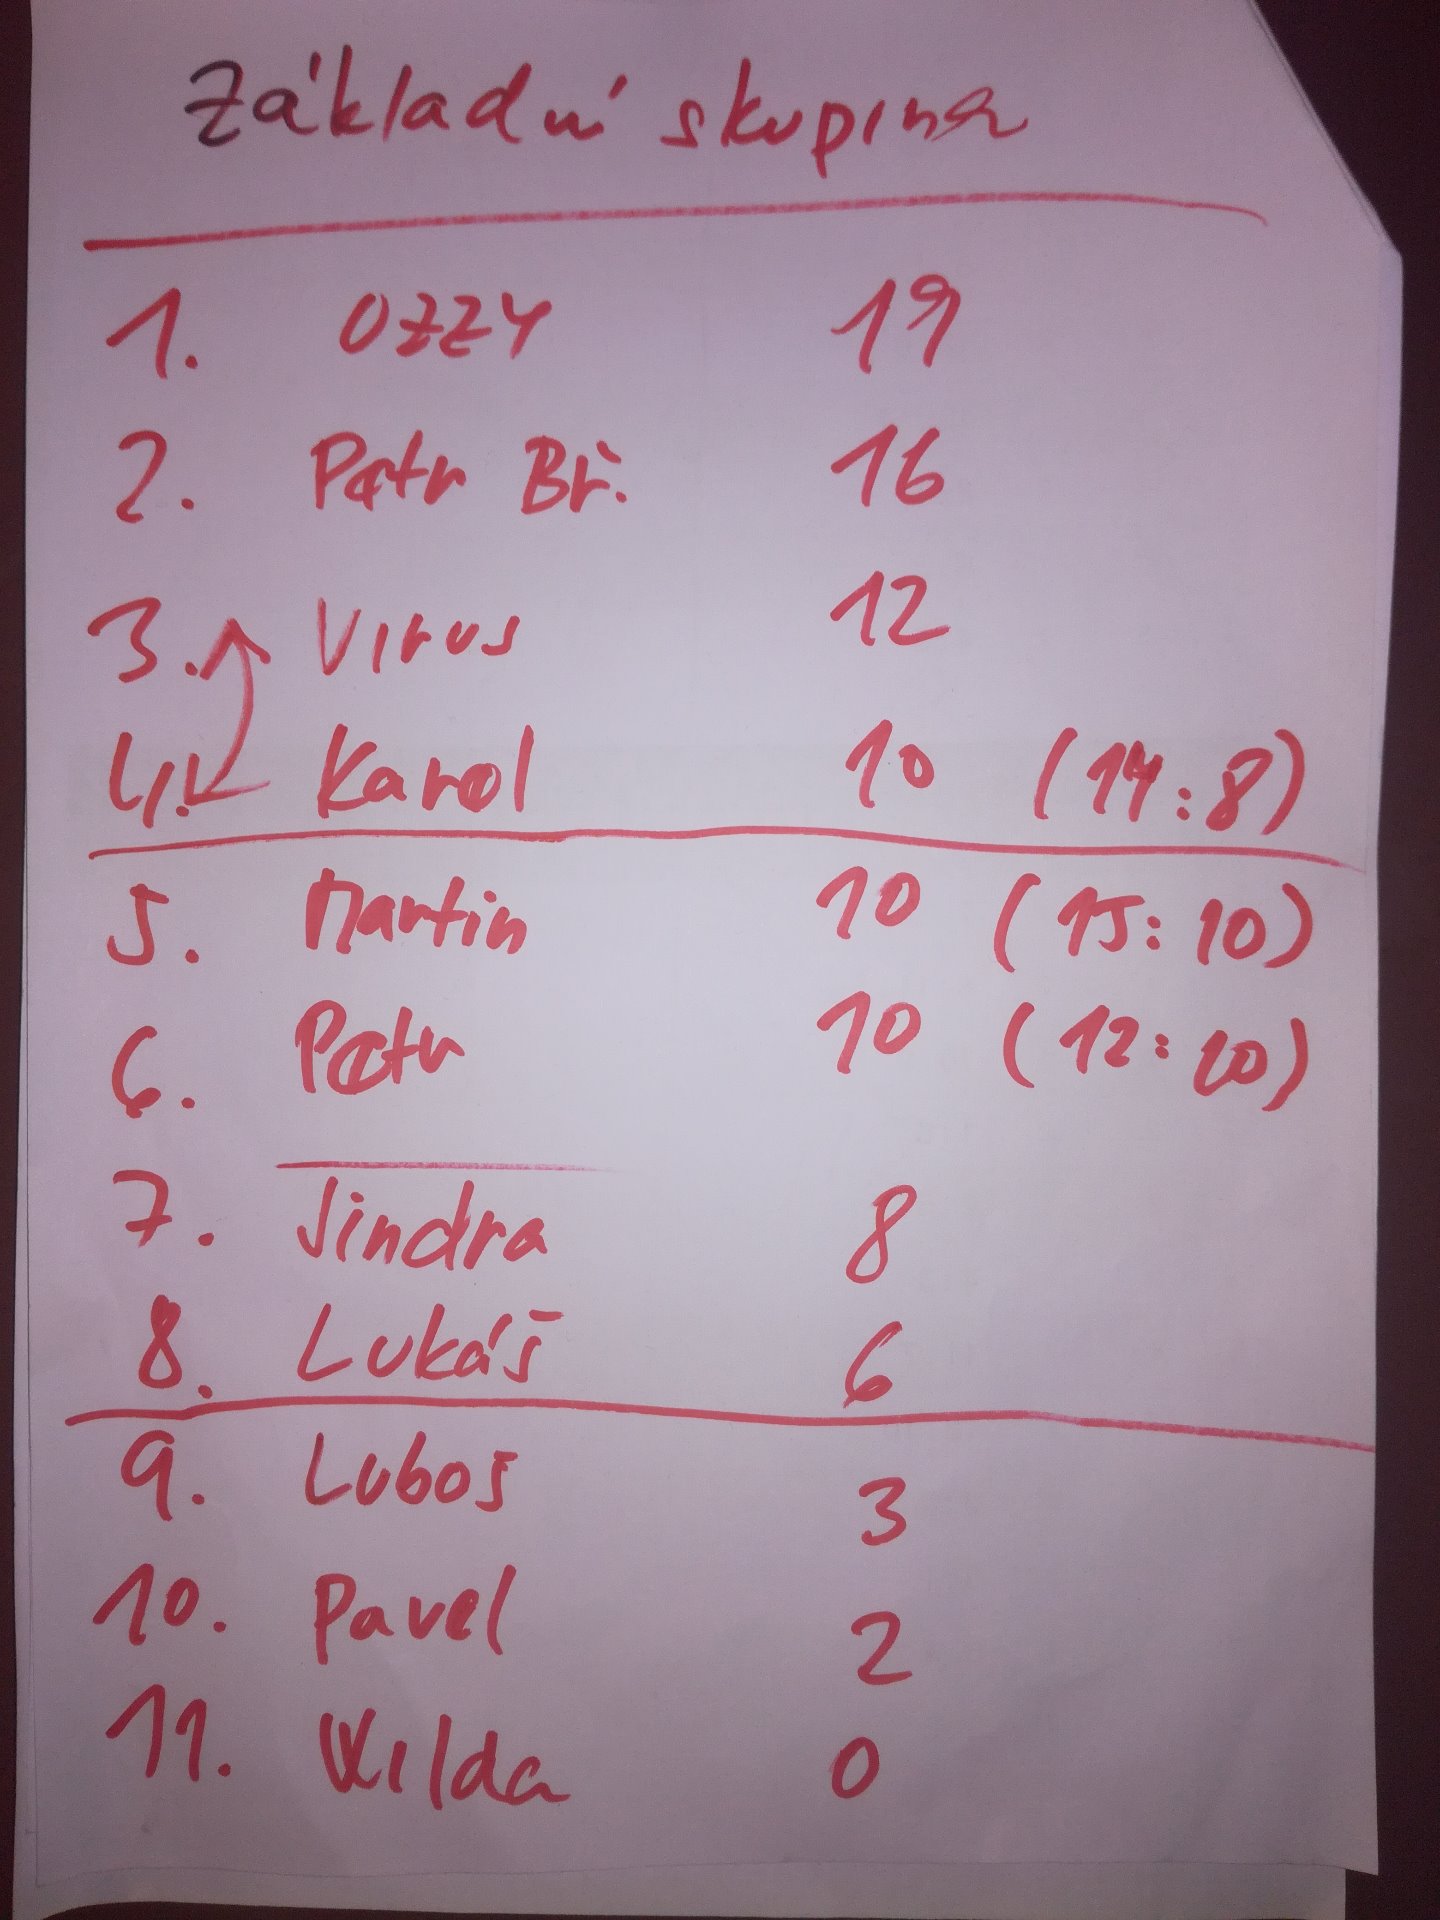 Základní skupina
1. OZZY 19
2. Petr Bř. 16
3. Virus 12
4. Karol 10 (14:8)
5. Martin 10 (15:10)
6. Petr 10 (12:10)
7. Jindra 8
8. Lukáš 6
9. Luboš 3
10. Pavel 2
11. Vilda 0